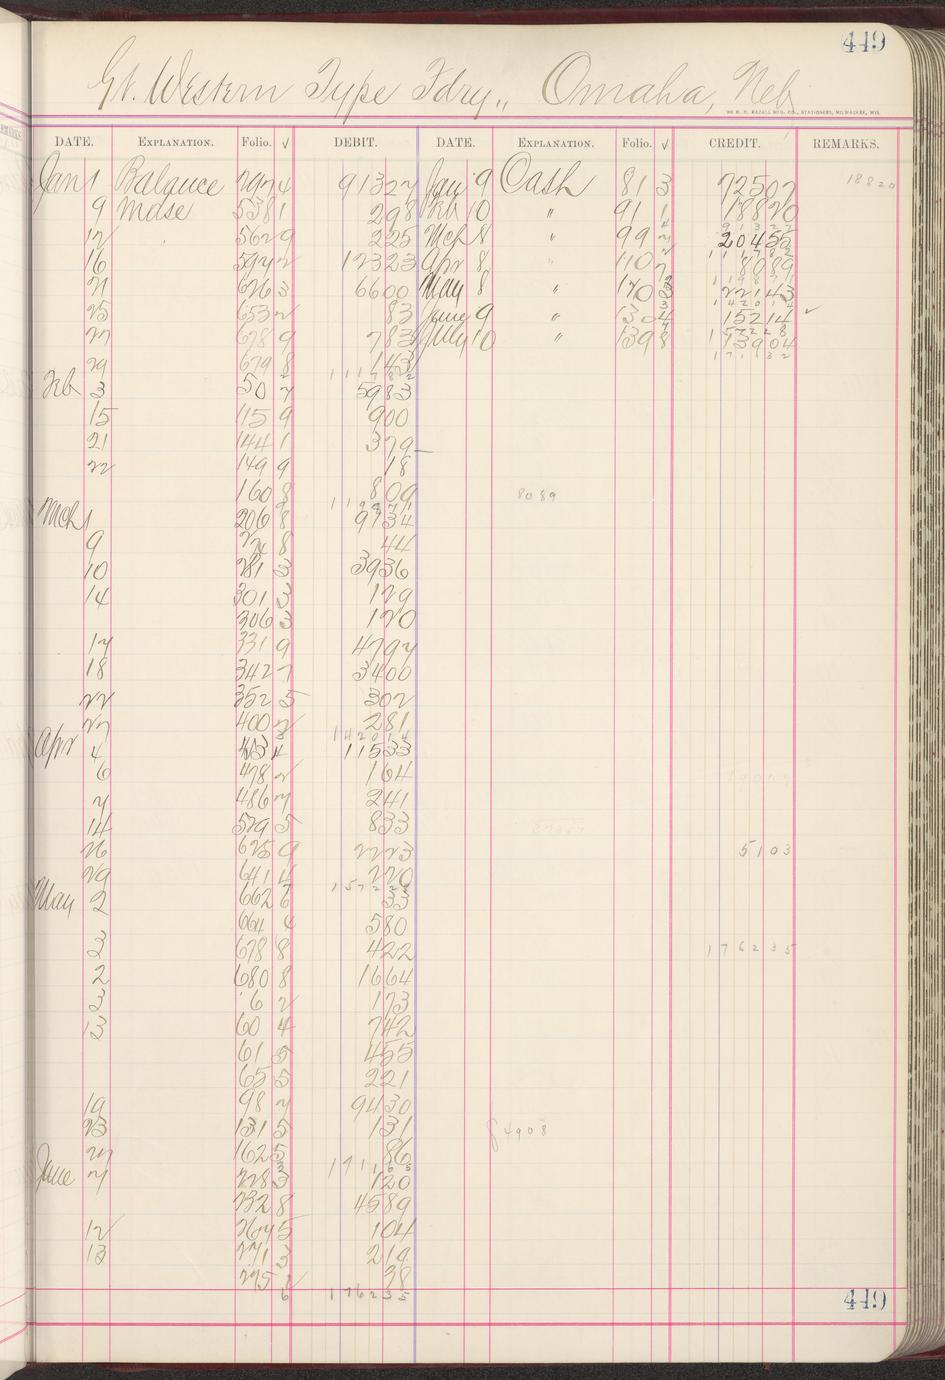 449
Gt. Western Type Fdry,, Omaha, Neb
THE H. H. RAZALL MFG. CO., STATIONERS, MILWAUKEE, WIS.
DATE. EXPLANATION. Folio. √ DEBIT. DATE. EXPLANATION. Folio. √ CREDIT. REMARKS.
Jan 1 Balance 91327 Jan 9 Cash 81 3 72507 18820
9 Mdse 538 1 298 Feb 10 " 91 1 18820
12 562 9 225 Mch 8 " 99 20452
16 592 2 12323 Apr 8 " 110 8089
21 626 3 6600 May 8 " 22143
25 653 2 83 June 9 " 304 15214 ✓
27 678 9 783 July 10 " 139 8 13904
29 679 8 143 171132
111782
Feb 3 50 7 5983
15 115 9 900
21 144 1 379
22 149 9 18
160 8 809 8089
119871
Mch 1 206 8 9734
9 8 44
10 281 3 3936
14 301 3 129
306 3 120
17 331 9 4797
18 342 7 3400
22 352 5 302
27 400 2 281
142014
Apr 4 453 4 11533
6 478 2 164
7 486 7 241
14 579 5 833
26 625 9 2223 5103
29 641 4 220
1572
May 2 662 6 33
664 4 580
3 678 8 422 176235
2 680 8 1664
3 6 2 173
13 60 4 742
61 5 455
65 5 221
19 98 7 9430
23 131 5 131 84908
27 162 5 86
1711
June 7 228 3 120
232 8 4589
12 267 5 104
13 271 3 219
275 1 38
6 176235
449